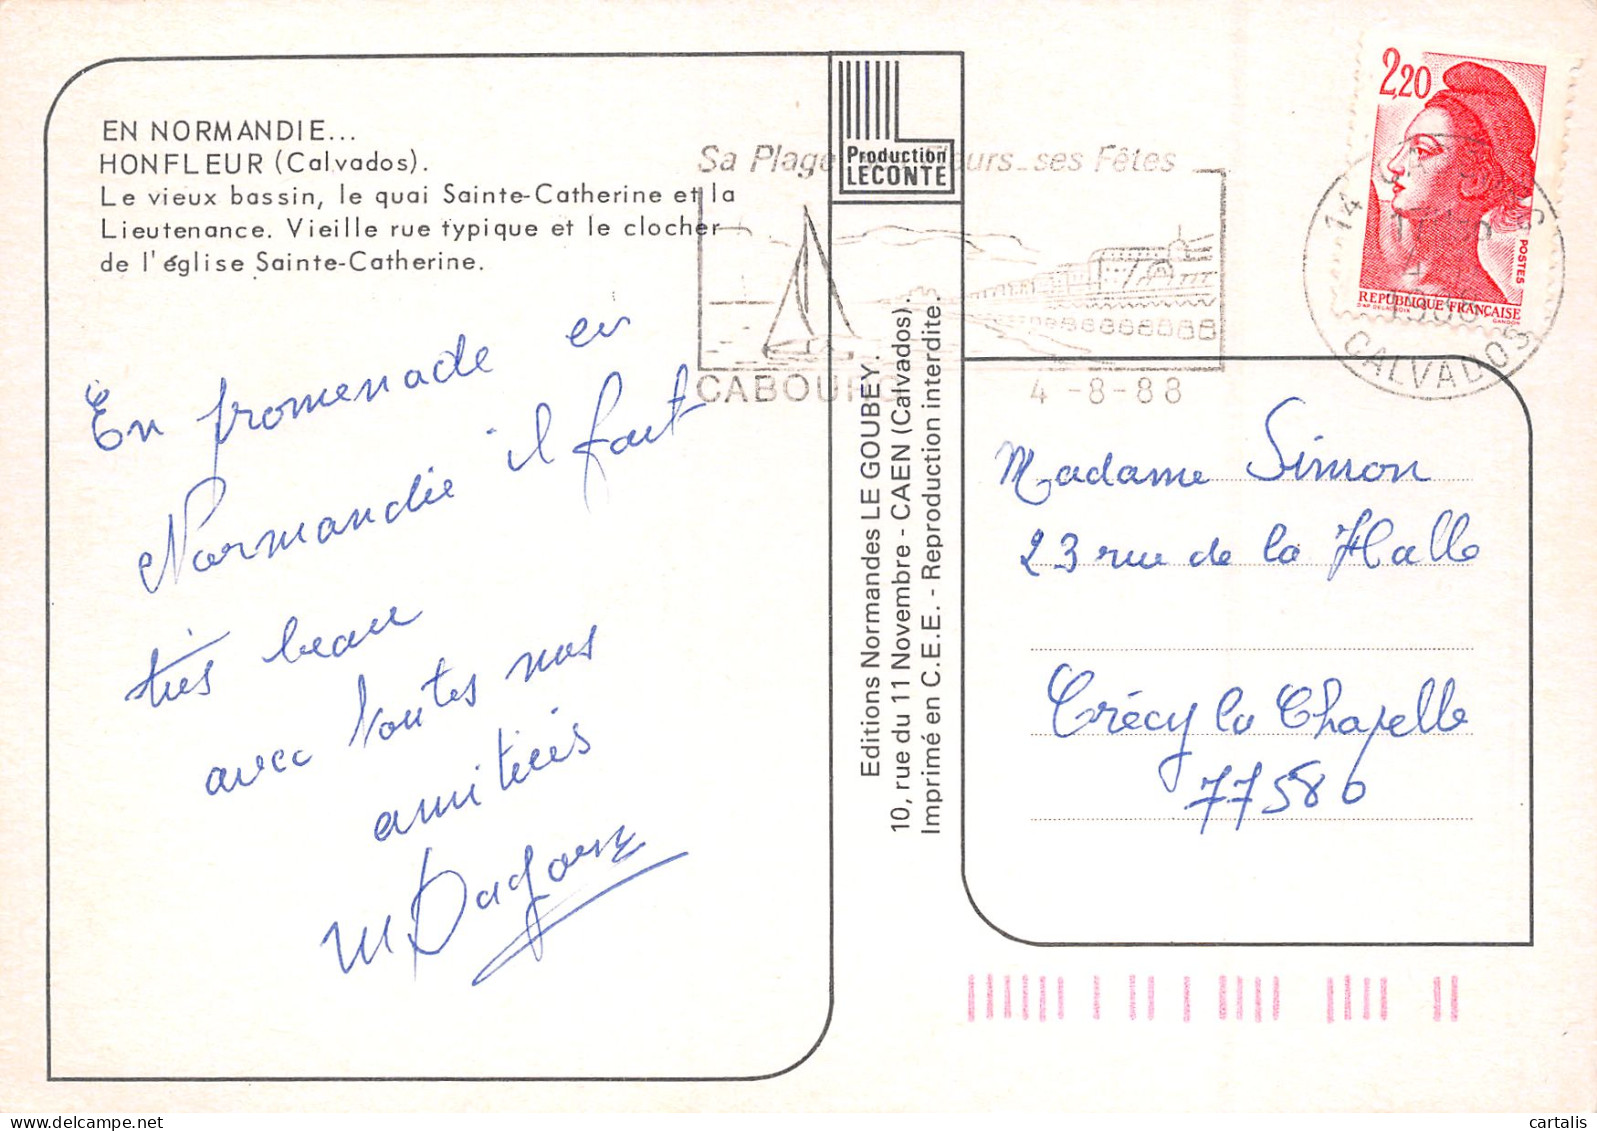 EN NORMANDIE...
HONFLEUR (Calvados).
Le vieux bassin, le quai Sainte-Catherine et la
Lieutenance. Vieille rue typique et le clocher
de l'église Sainte-Catherine.
En promenade en
Normandie il fait
très beau
avec toutes nos
amitiés
Production
LECONTE
Editions Normandes LE GOUBEY.
10, rue du 11 Novembre - CAEN (Calvados).
Imprimé en C.E.E. - Reproduction interdite.
Sa Plage Fleurs_ses Fêtes
CABOURG
4-8-88
14
CALVADOS
2,20
POSTES
REPUBLIQUE FRANÇAISE
GANDON
Madame Simon
23 rue de la Halle
Crécy la Chapelle
77580
cartalis